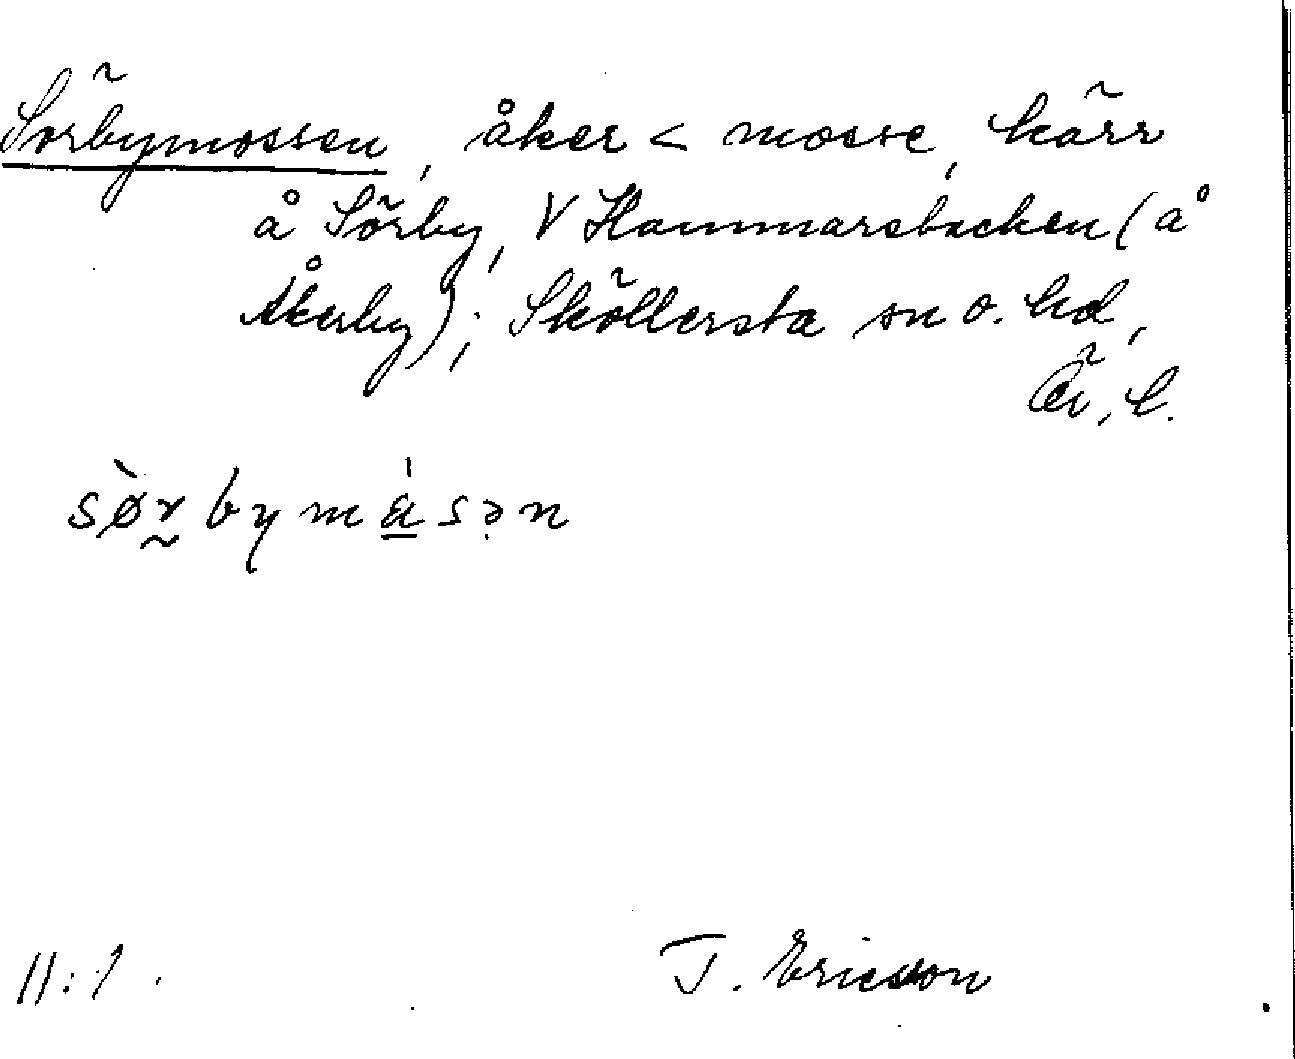 Sörbymossen, åker < mosse, kärr
å Sörby, V Hammarsbacken (å
Åkerby); Sköllersta sn o. hd,
Ör. l.
sørbymåsən
11:1.
T. Ericson